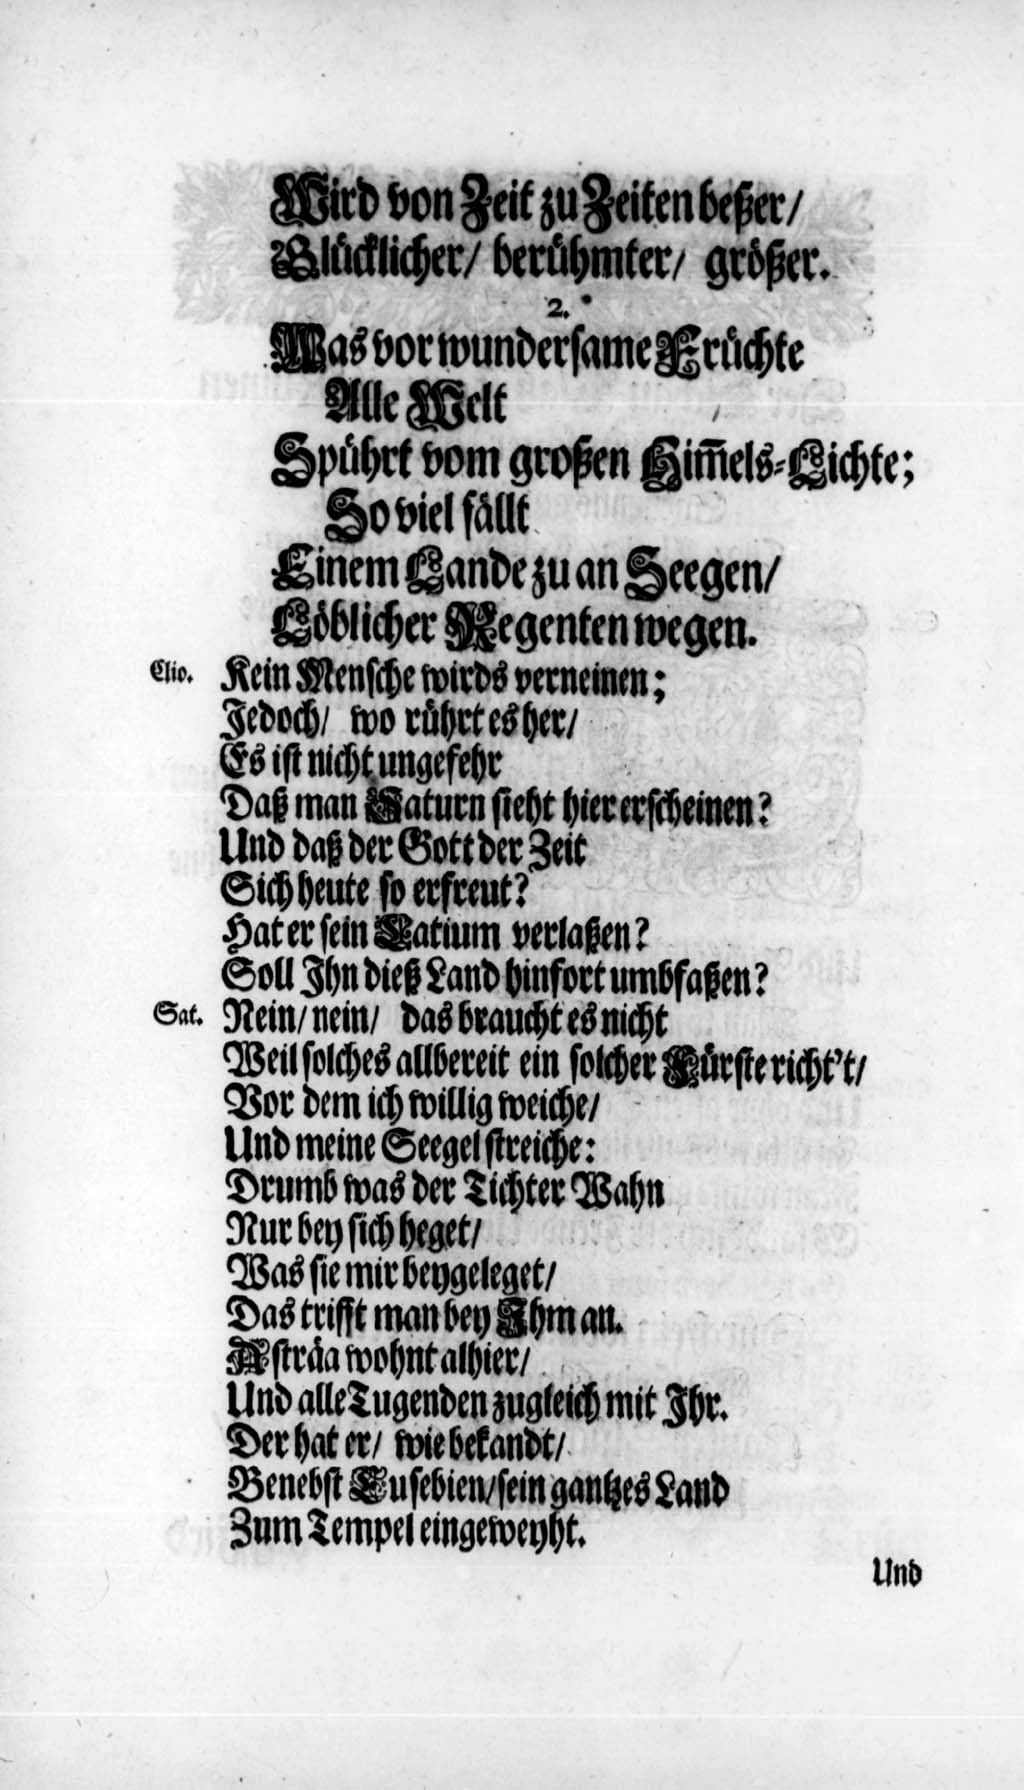 Wird von Zeit zu Zeiten beßer/
Glücklicher/ berühmter/ größer.
2.
Was vor wundersame Früchte
Alle Welt
Spührt vom großen Him̄els-Lichte;
So viel fällt
Einem Lande zu an Seegen/
Löblicher Regenten wegen.
Clio. Kein Mensche wirds verneinen;
Jedoch/ wo rührt es her/
Es ist nicht ungefehr
Daß man Saturn sieht hier erscheinen?
Und daß der Gott der Zeit
Sich heute so erfreut?
Hat er sein Latium verlaßen?
Soll Jhn dieß Land hinfort umbfaßen?
Sat. Nein/ nein/ das braucht es nicht
Weil solches allbereit ein solcher Fürste richt't/
Vor dem ich willig weiche/
Und meine Seegel streiche:
Drumb was der Tichter Wahn
Nur bey sich heget/
Was sie mir beygeleget/
Das trifft man bey Jhm an.
Asträa wohnt alhier/
Und alle Tugenden zugleich mit Jhr.
Der hat er/ wie bekandt/
Benebst Eusebien/ sein gantzes Land
Zum Tempel eingeweyht.
Und